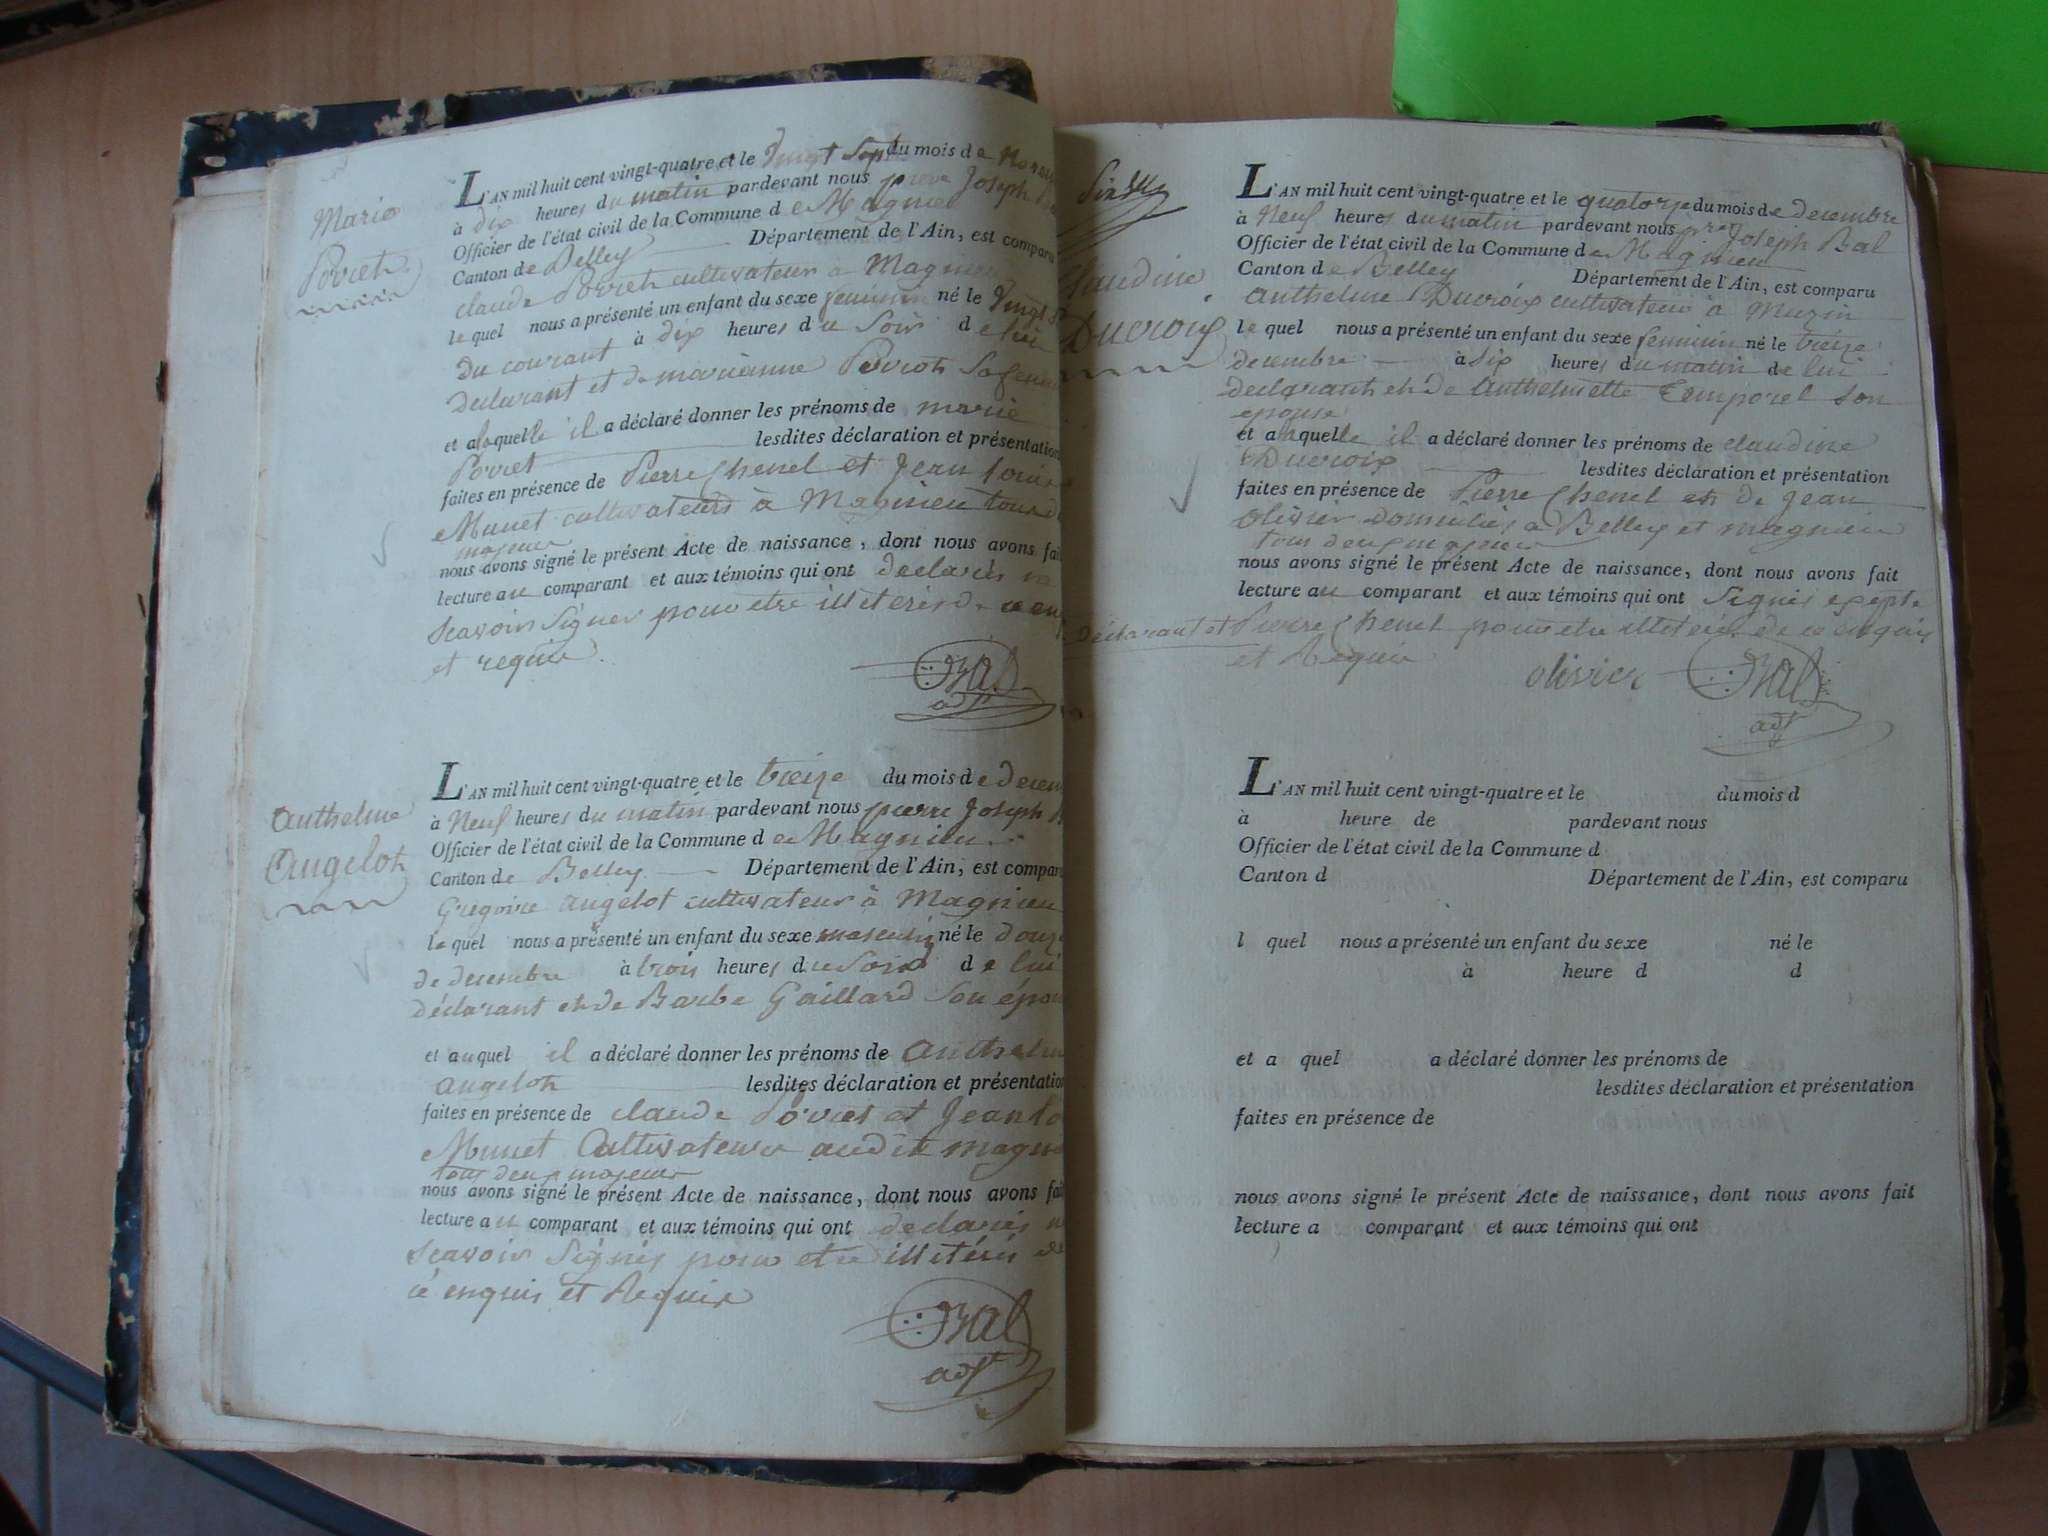 Marie
Povret
L'AN mil huit cent vingt-quatre et le Vingt Sept du mois de
à dix heures du matin pardevant nous pierre Joseph
Officier de l'état civil de la Commune de Magnieu
Canton de Belley Département de l'Ain, est comparu
claude Povret cultivateur à Magnieu
le quel nous a présenté un enfant du sexe feminin né le Vingt
du courant à dix heures du Soir de lui
declarant et de marianne Povret Sa
et a laquelle il a déclaré donner les prénoms de marie
Povret lesdites déclaration et présentation
faites en présence de Pierre Chenel et Jean Louis
Munet cultivateurs à Magnieu tous
majeur
nous avons signé le présent Acte de naissance, dont nous avons fait
lecture au comparant et aux témoins qui ont declarés
Scavoir Signer pour etre illiterés de ce
et requis.
Bal
adjt
Anthelme
Angelot
L'AN mil huit cent vingt-quatre et le treize du mois de
à Neuf heures du matin pardevant nous pierre Joseph
Officier de l'état civil de la Commune de Magnieu
Canton de Belley Département de l'Ain, est comparu
Gregoire angelot cultivateur à Magnieu
le quel nous a présenté un enfant du sexe masculin né le douze
de decembre à trois heures du Soir de lui
déclarant et de Barbe Gaillard Son
et au quel il a déclaré donner les prénoms de
angelot lesdites déclaration et présentation
faites en présence de claude Povret et Jean
Munet Cultivateurs audit
tous deux majeur
nous avons signé le présent Acte de naissance, dont nous avons fait
lecture au comparant et aux témoins qui ont declarés
Scavoir Signés pour etre illitérés de
ce enquis et Requis
Bal
adjt
Claudine
Ducroix
L'AN mil huit cent vingt-quatre et le quatorze du mois de decembre
à Neuf heures du matin pardevant nous pre Joseph Bal
Officier de l'état civil de la Commune de Magnieu
Canton de Belley Département de l'Ain, est comparu
Anthelme Ducroix cultivateur à Muzin
le quel nous a présenté un enfant du sexe feminin né le treize
decembre à Six heures du matin de lui
declarant et de Anthelmette Temporel Son
epouse
et a laquelle il a déclaré donner les prénoms de claudine
Ducroix lesdites déclaration et présentation
faites en présence de Pierre Chenel et de jean
Olivier Domiciliés a Belley et magnieu
tous deux majeur
nous avons signé le présent Acte de naissance, dont nous avons fait
lecture au comparant et aux témoins qui ont Signés exepte
Déclarant et Pierre Chenel pour etre illiterés de ce enquis
et Requis
olivier Bal
adjt
L'AN mil huit cent vingt-quatre et le du mois d
à heure de pardevant nous
Officier de l'état civil de la Commune d
Canton d Département de l'Ain, est comparu
l quel nous a présenté un enfant du sexe né le
à heure d d
et a quel a déclaré donner les prénoms de
lesdites déclaration et présentation
faites en présence de
nous avons signé le présent Acte de naissance, dont nous avons fait
lecture a comparant et aux témoins qui ont